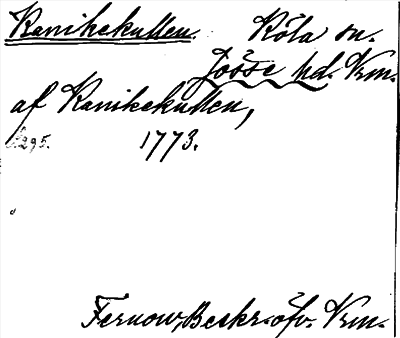 Kanikekullen. Köla sn.
Jösse hd. Vrm.
af Kanikekullen,
s. 295. 1773.
Fernow, Beskr. öfv. Vrm.